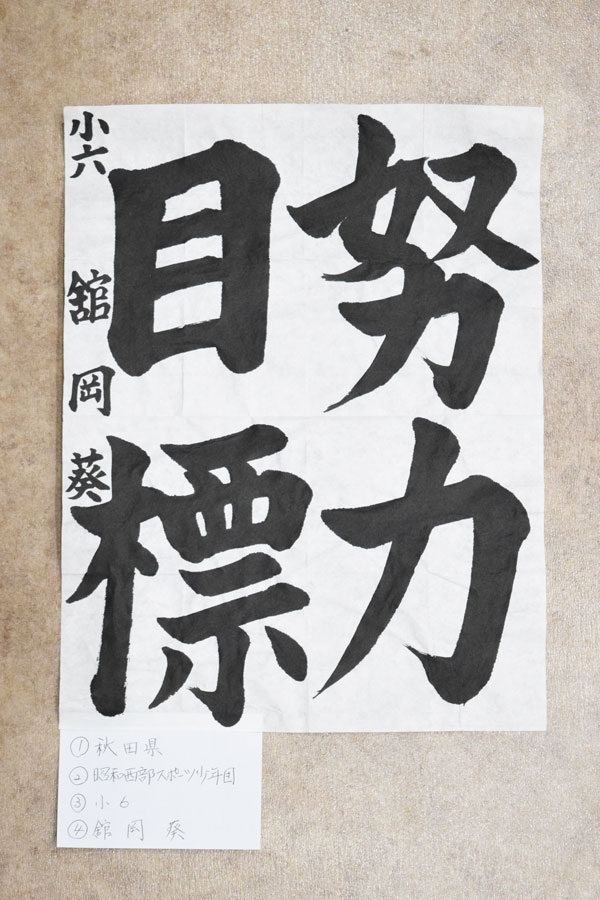 努力
目標
小六 舘岡葵
①秋田県
②昭和西部スポーツ少年団
③小6
④舘岡 葵